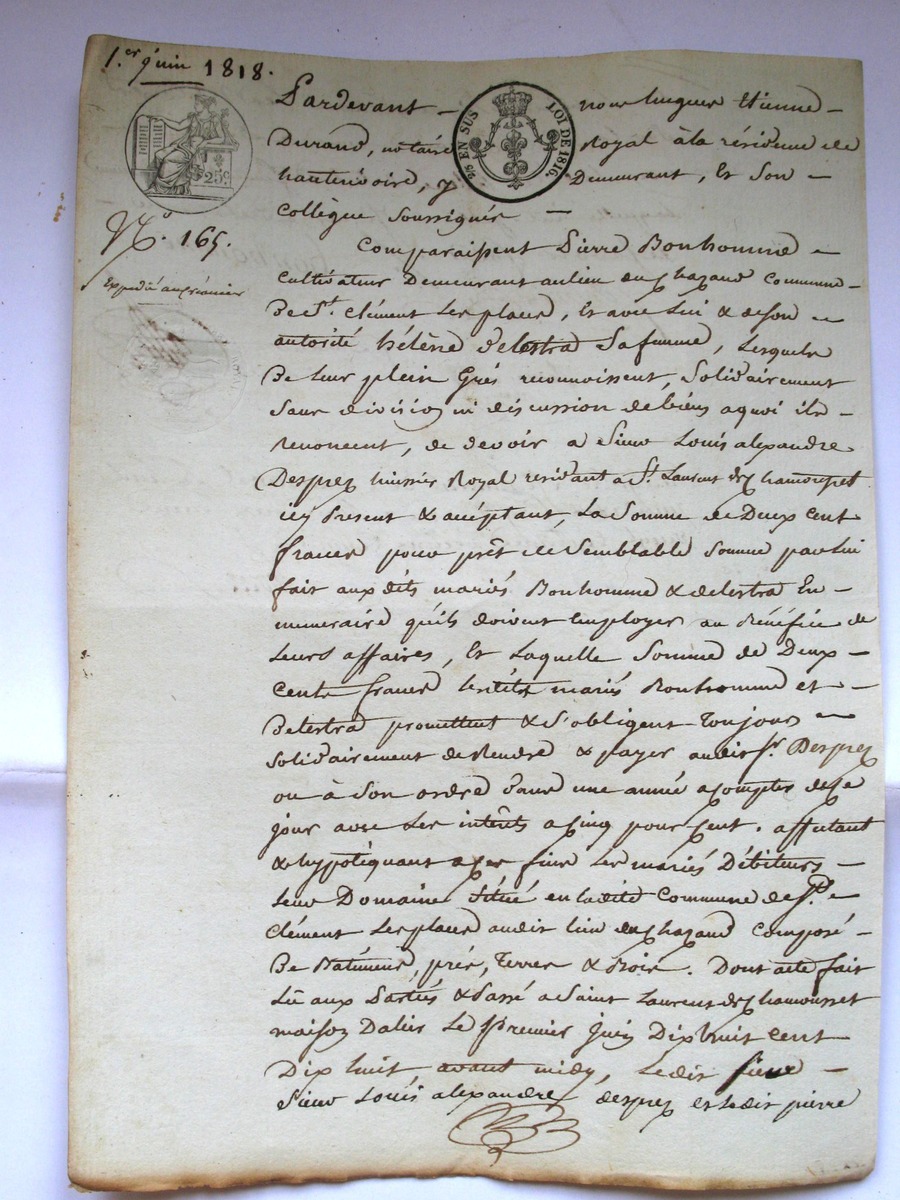 1.er juin 1818.
25c.
9/5 EN SUS LOI DE 1816.
N.o 165.
Expédié au créancier
Pardevant — nous hugues Etienne —
Durand, notaire Royal à la résidence de
hauterivoire, y Demeurant, Et Son —
Collègue Soussignés —
Comparaissent Pierre Bonhomme —
Cultivateur Demeurant au lieu du Chazaud Commune —
De St. Clément Les places, Et avec Lui & de son —
autorité hélène Delestra Sa femme, Lesquels
De leur plein Grés reconnoissent, Solidairement
Sans division ni discussion de biens a quoi ils —
renoncent, de devoir a Sieur Louis alexandre
Desprez huissier Royal residant a St. Laurent de Chamousset
icy Présent & acceptant, La Somme de Deux Cent
francs pour prêt de Semblable Somme par Lui
fait aux dits mariés Bonhomme & delestra En —
numeraire qu'ils doivent Employer au Bénéfice de
Leurs affaires, Et Laquelle Somme de Deux —
Cents francs Lesdits mariés Bonhomme et —
Delestra promettent & S'obligent Toujours —
Solidairement de Rendre & payer audit Sr. Desprez
ou à Son ordre Dans une année a Compter de Ce
jour avec Les intérêts a Cinq pour Cent. affectant
& hypotéquant a Ces fins Les mariés Débiteurs —
Leur Domaine Situé en ladite Commune de St. —
Clément Les places audit lieu du Chazaud Composé —
De Bâtimens, prés, Terres & Bois. Dont acte fait
Lû aux Parties & Passé a Saint Laurent de Chamousset
maison Dalin Le Premier juin Dix huit Cent
Dix huit avant midy, Ledit Sieur —
Sieur Louis alexandre desprez et Ledit pierre